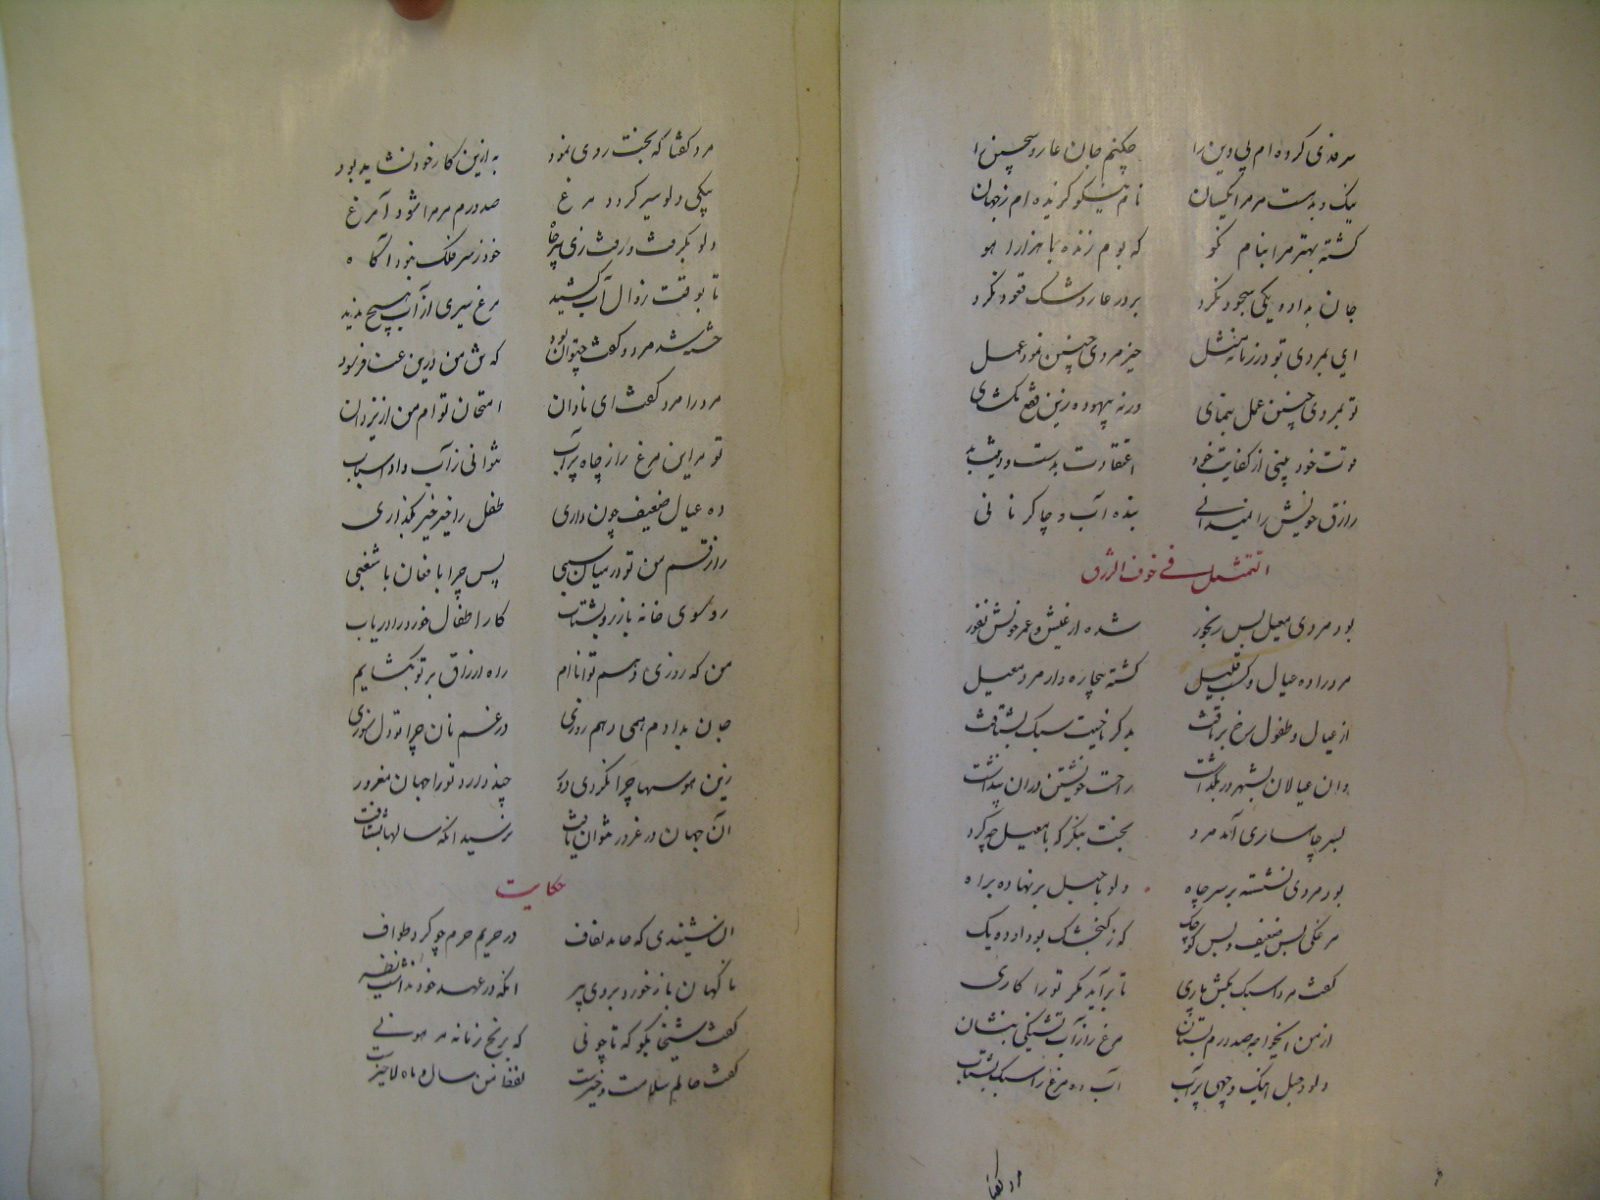 سرفدی کرده‌ام پی دین را چکنم جان عار و سجین را
نیک و بدست مر مرا یکسان نام نیکو گزیده‌ام ز جهان
کشته بهتر مرا بنام نکو که بوم زنده با هزار آهو
جان بداد و یکی سجود نکرد بر در عار و شک قعود نکرد
ای بمردی تو در زمانه مثل حیز مردی چنین نمود عمل
تو بمردی چنین عمل بنمای ورنه بیهوده زین قعع مکشای
قوت خود بینی از کفایت خود اعتقادت بدست و دینت بد
رازق خویش را نمیدانی بنده آب و چاکر نانی
التمثیل فی خوف الرزق
بود مردی معیل بس رنجور شده از عیش و عمر خویش نفور
مرد را ده عیال و کسب قلیل گشته بیچاره وار مرد معیل
از عیال و طفول رخ برتافت بدگر ناحیت سبک بشتافت
وان عیالان بشهر در بگذاشت راحت خویشتن در آن پنداشت
بسر چاهساری آمد مرد بخت بنگر که با معیل چه کرد
بود مردی نشسته بر سر چاه دلو با حبل برنهاده براه
مرغکی بس ضعیف و بس کوچک که ز گنجشک بود از ده یک
گفت مردا سبک بکش باری تا برآید مگر ترا کاری
از من ایخواجه صد درم بستان مرغ را ز آب تشنگی بنشان
دلو و حبل اینک و چهی پر آب آب ده مرغ را سبک بشتاب
مرد گفتا
مرد گفتا که بخت روی نمود به ازین کار خود نشاید بود
بیکی دلو سیر گردد مرغ صد درم مر مرا شود آمرغ
دلو بگرفت و رفت زی سر چاه خود ز سر فلک نبود آگاه
تا بوقت زوال آب کشید مرغ سیری از آب هیچ ندید
خیره شد مرد و گفت چتوان بود که تن من درین عنت فرسود
مرد را مرد گفت ای نادان امتحان توام من از یزدان
تو مر این مرغ را ز چاه پر آب نتوانی ز آب داد اسباب
ده عیال ضعیف چون داری طفل را خیر خیر بگذاری
رازقم من تو در میان سببی پس چرا با فغان با شغبی
رو سوی خانه باز رو بشتاب کار اطفال خورد را دریاب
من که روزی دهم توانا‌ام راه ارزاق بر تو بگشایم
جان بدادم همی دهم روزی در غم نان چرا تو دل سوزی
زین هوسها چرا نگردی دور چند دارد تو را جهان مغرور
آن جهان در غرور نتوان یافت نرسید آنکه سالها بشتافت
حکایت
آن شنیدی که حامد لفاف در حریم حرم چو کرد طواف
ناگهان باز خورد بروی پیر آنکه در عهد خود نداشت نظیر
گفت شیخا بگو که تا چونی که برنج زمانه مرهونی
گفت حالم سلامت و خیرست